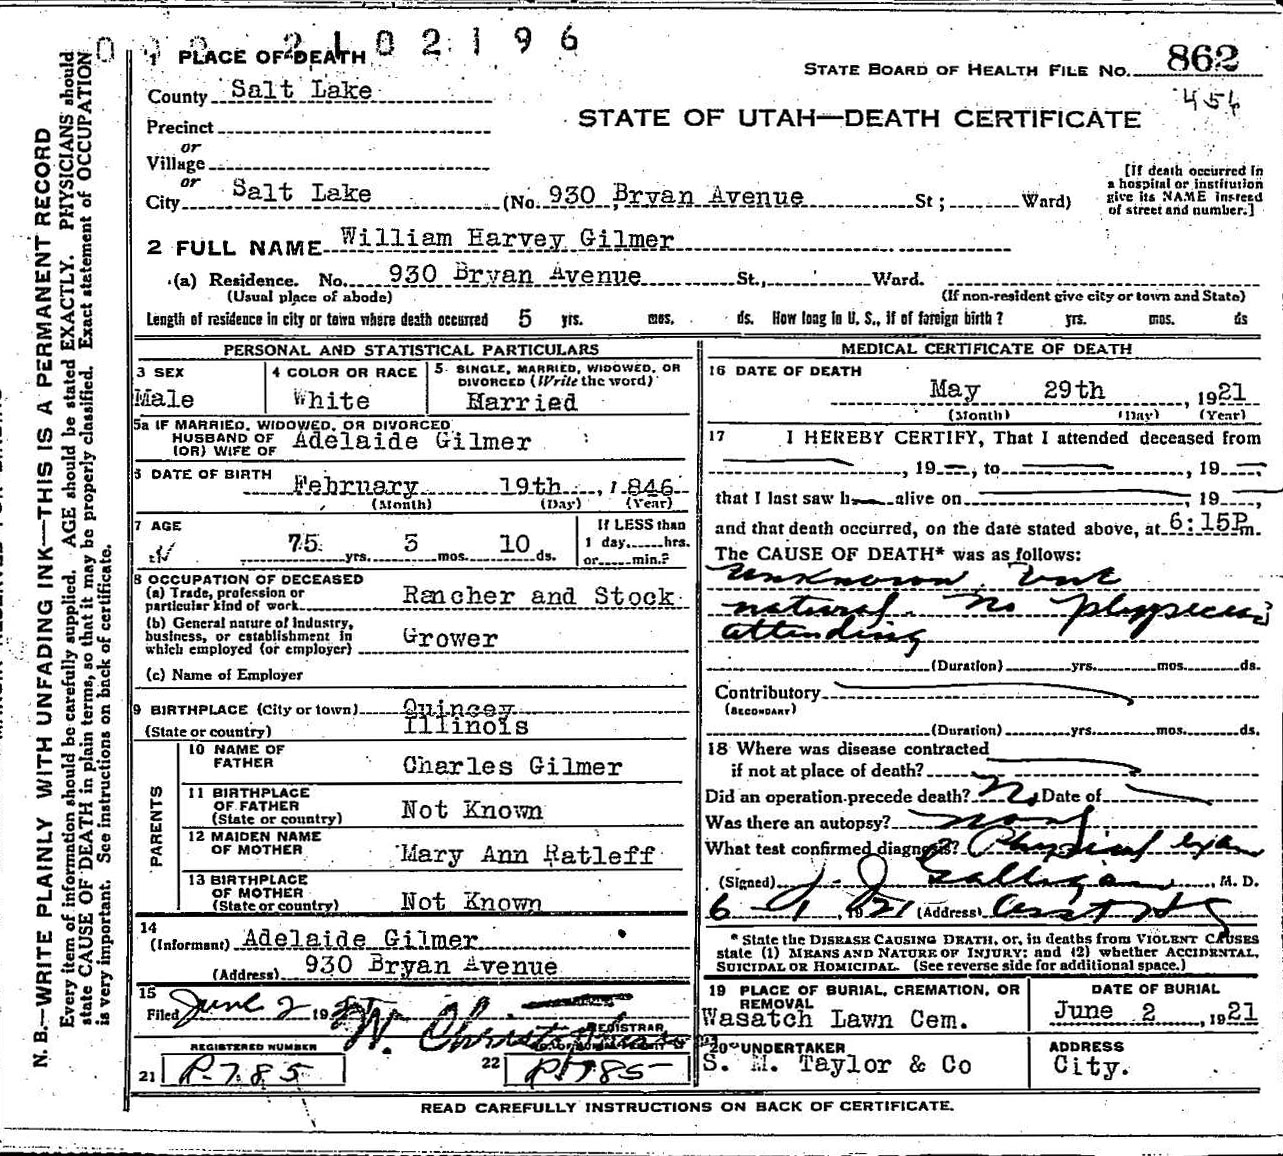 0 0 0 2 1 0 2 1 9 6
1 PLACE OF DEATH
STATE BOARD OF HEALTH FILE NO. 862
456
County Salt Lake
STATE OF UTAH—DEATH CERTIFICATE
Precinct
or
Village
or
City Salt Lake (No. 930 Bryan Avenue St ; Ward)
[If death occurred in
a hospital or institution
give its NAME instead
of street and number.]
2 FULL NAME William Harvey Gilmer
(a) Residence. No. 930 Bryan Avenue St., Ward.
(Usual place of abode) (If non-resident give city or town and State)
Length of residence in city or town where death occurred 5 yrs. mos. ds. How long in U. S., if of foreign birth? yrs. mos. ds
PERSONAL AND STATISTICAL PARTICULARS
3 SEX
Male
4 COLOR OR RACE
White
5 SINGLE, MARRIED, WIDOWED, OR
DIVORCED (Write the word)
Married
5a IF MARRIED, WIDOWED, OR DIVORCED
HUSBAND OF
(OR) WIFE OF Adelaide Gilmer
6 DATE OF BIRTH
February 19th , 1846
(Month) (Day) (Year)
7 AGE
75 yrs. 3 mos. 10 ds.
If LESS than
1 day,.....hrs.
or.....min.?
8 OCCUPATION OF DECEASED
(a) Trade, profession or
particular kind of work Rancher and Stock
(b) General nature of Industry,
business, or establishment in
which employed (or employer) Grower
(c) Name of Employer
9 BIRTHPLACE (City or town) Quincey
(State or country) Illinois
PARENTS
10 NAME OF
FATHER Charles Gilmer
11 BIRTHPLACE
OF FATHER
(State or country) Not Known
12 MAIDEN NAME
OF MOTHER Mary Ann Ratleff
13 BIRTHPLACE
OF MOTHER
(State or country) Not Known
14
(Informant) Adelaide Gilmer
(Address) 930 Bryan Avenue
15
Filed June 2 19
REGISTRAR
REGISTERED NUMBER
21 P-785
22 P-785
MEDICAL CERTIFICATE OF DEATH
16 DATE OF DEATH
May 29th , 1921
(Month) (Day) (Year)
17 I HEREBY CERTIFY, That I attended deceased from
, 19 , to , 19
that I last saw h alive on 19
and that death occurred, on the date stated above, at 6:15P m.
The CAUSE OF DEATH* was as follows:
unknown but
natural. No physician
attending
(Duration) yrs. mos. ds.
Contributory
(SECONDARY)
(Duration) yrs. mos. ds.
18 Where was disease contracted
if not at place of death?
Did an operation precede death? No Date of
Was there an autopsy?
What test confirmed diagnosis? Physical Exam
(Signed) J. J. Galligan , M. D.
6 - 1 , 1921 (Address)
* State the DISEASE CAUSING DEATH, or, in deaths from VIOLENT CAUSES
state (1) MEANS AND NATURE OF INJURY; and (2) whether ACCIDENTAL,
SUICIDAL OR HOMICIDAL. (See reverse side for additional space.)
19 PLACE OF BURIAL, CREMATION, OR
REMOVAL
Wasatch Lawn Cem.
DATE OF BURIAL
June 2 , 1921
20 UNDERTAKER
S. M. Taylor & Co
ADDRESS
City.
READ CAREFULLY INSTRUCTIONS ON BACK OF CERTIFICATE.
N. B.—WRITE PLAINLY WITH UNFADING INK—THIS IS A PERMANENT RECORD
Every item of information should be carefully supplied. AGE should be stated EXACTLY. PHYSICIANS should
state CAUSE OF DEATH in plain terms, so that it may be properly classified. Exact statement of OCCUPATION
is very important. See instructions on back of certificate.